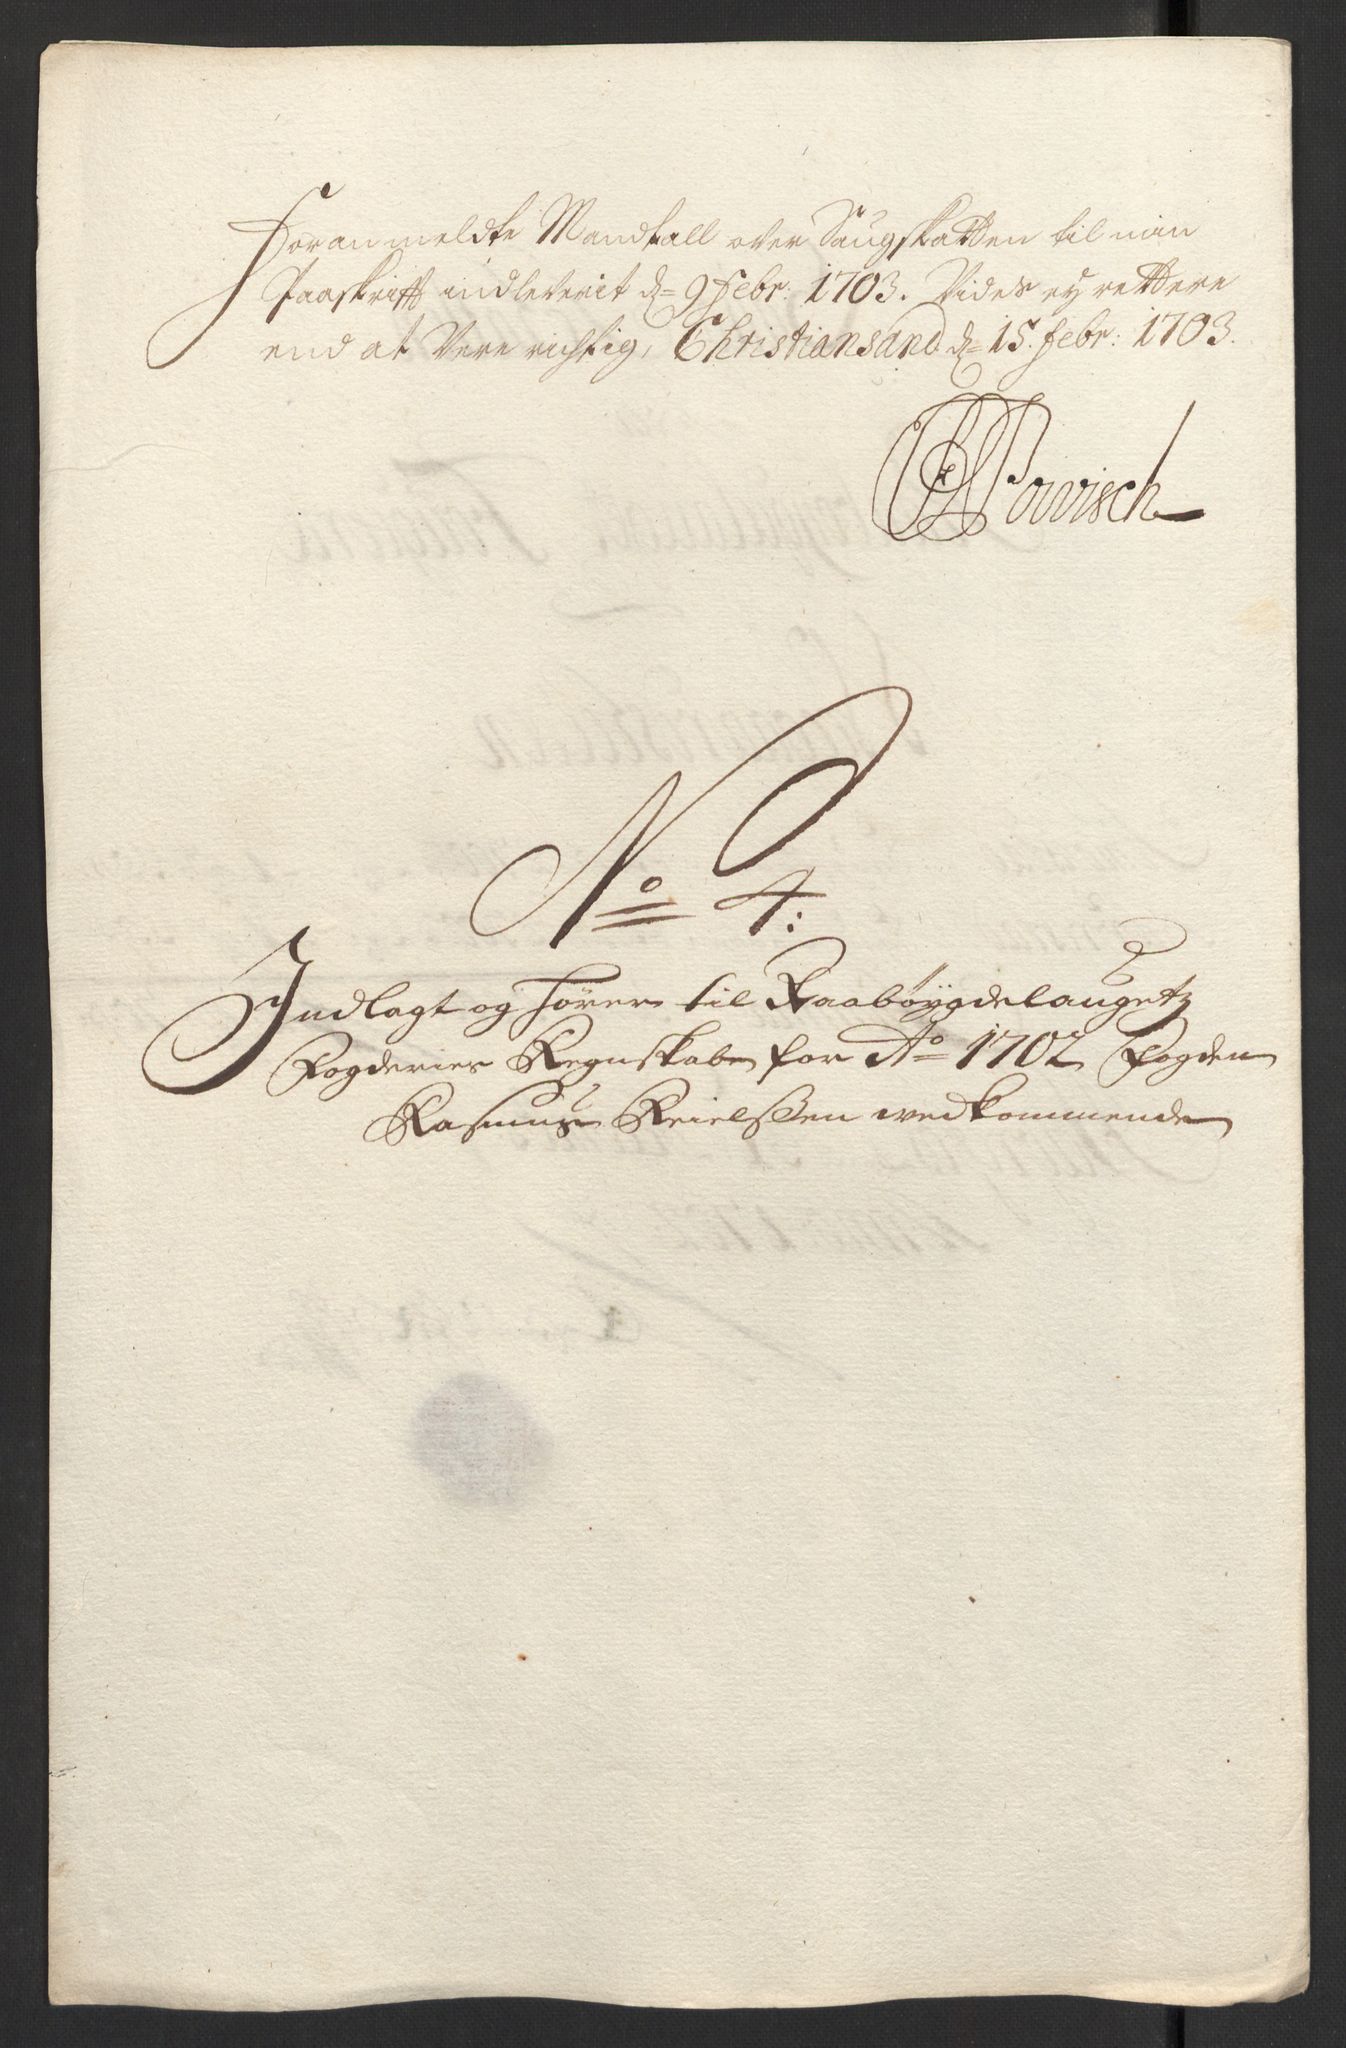 Foranmeldte Mandtall over Saugskatten til min
Paaskrifft indleverit d= 9 febr: 1703. Vides ey rettere
end at Vere richtig, Christiansand d= 15. febr: 1703.
Powisch
No 4:
Indlagt og hører til Raabøygdelaugetz
Fogderies Regnskab for Ao 1702 Fogden
Rasmus Reielssen wedkommende